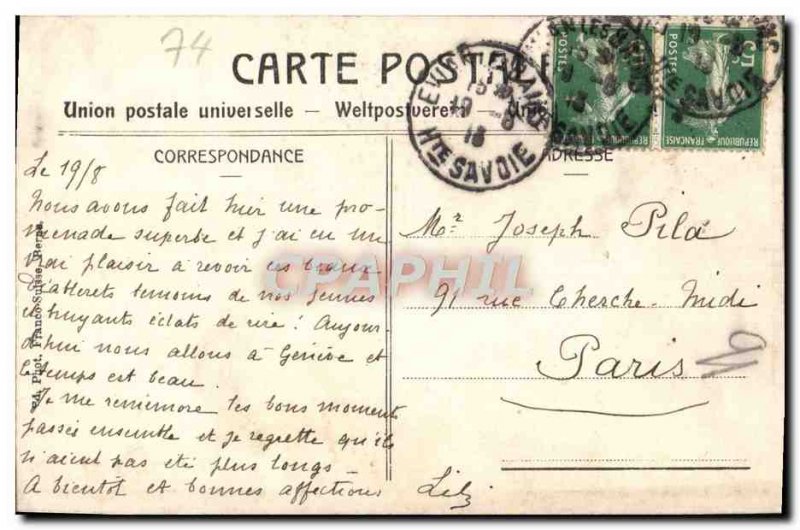 74
CARTE POSTALE
Union postale universelle — Weltpostverein —
CORRESPONDANCE
ADRESSE
EVIAN LES BAINS
19 - 8
13
Hte SAVOIE
POSTES
5c
REPUBLIQUE FRANÇAISE
Le 19/8
Nous avons fait hier une pro-
menade superbe et j'ai eu un
vrai plaisir à revoir ces beaux
témoins de nos jeunes
et bruyants éclats de rire! Aujour-
d'hui nous allons à Genève et
le temps est beau.
Je me remémore les bons moments
passés ensemble et je regrette qu'ils
n'aient pas été plus longs —
A bientôt et bonnes affections
Lili
Mr Joseph Pila
91 rue Cherche-Midi
Paris
Phot. Franco-Suisse, Berne
CPAPHIL